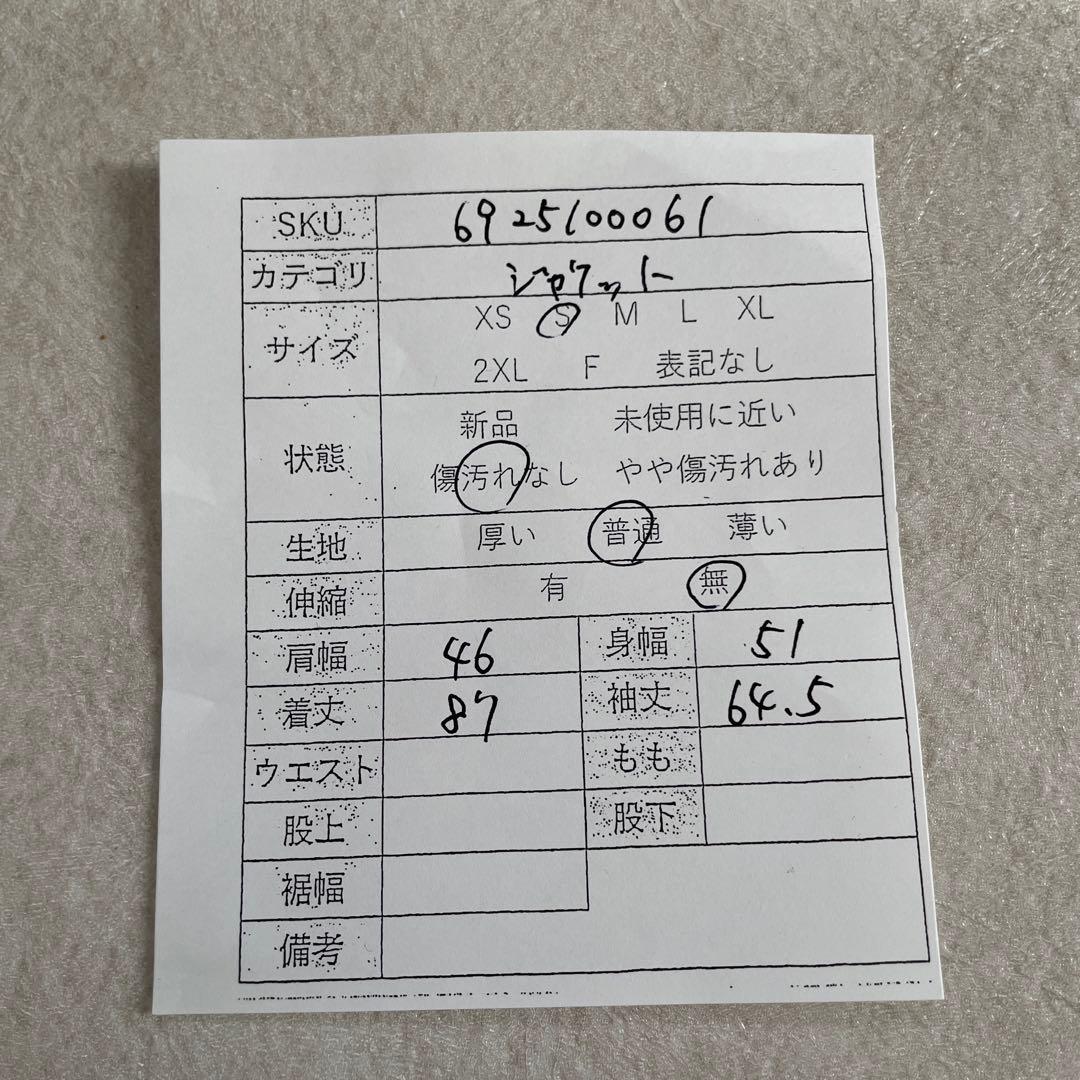 SKU 6925100061
カテゴリ ジャケット
サイズ XS S M L XL
2XL F 表記なし
状態 新品 未使用に近い
傷汚れなし やや傷汚れあり
生地 厚い 普通 薄い
伸縮 有 無
肩幅 46 身幅 51
着丈 87 袖丈 64.5
ウエスト もも
股上 股下
裾幅
備考